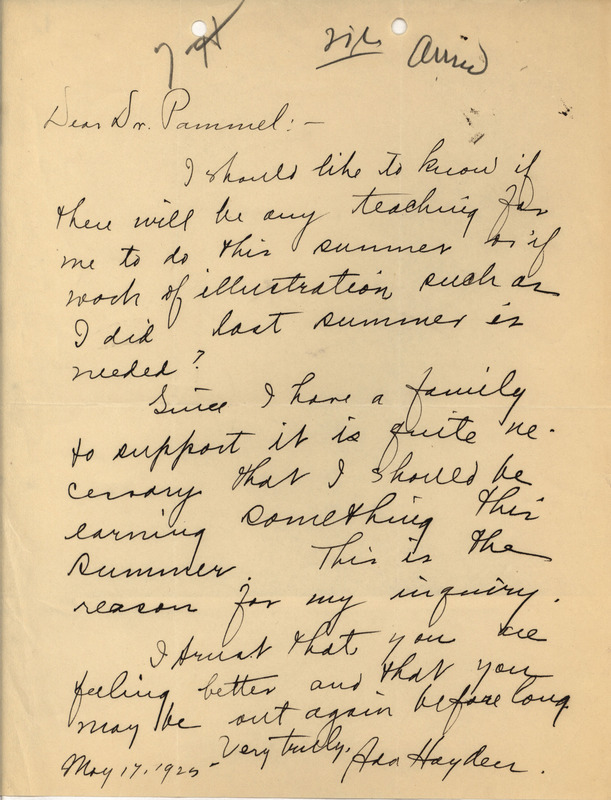 Dear Dr. Pammel:-
I should like to know if
there will be any teaching for
me to do this summer or if
work of illustration such as
I did last summer is
needed?
Since I have a family
to support it is quite ne-
cessary that I should be
earning something this
summer. This is the
reason for my inquiry.
I trust that you are
feeling better and that you
may be out again before long.
Very truly,
Ada Hayden.
May 17, 1925